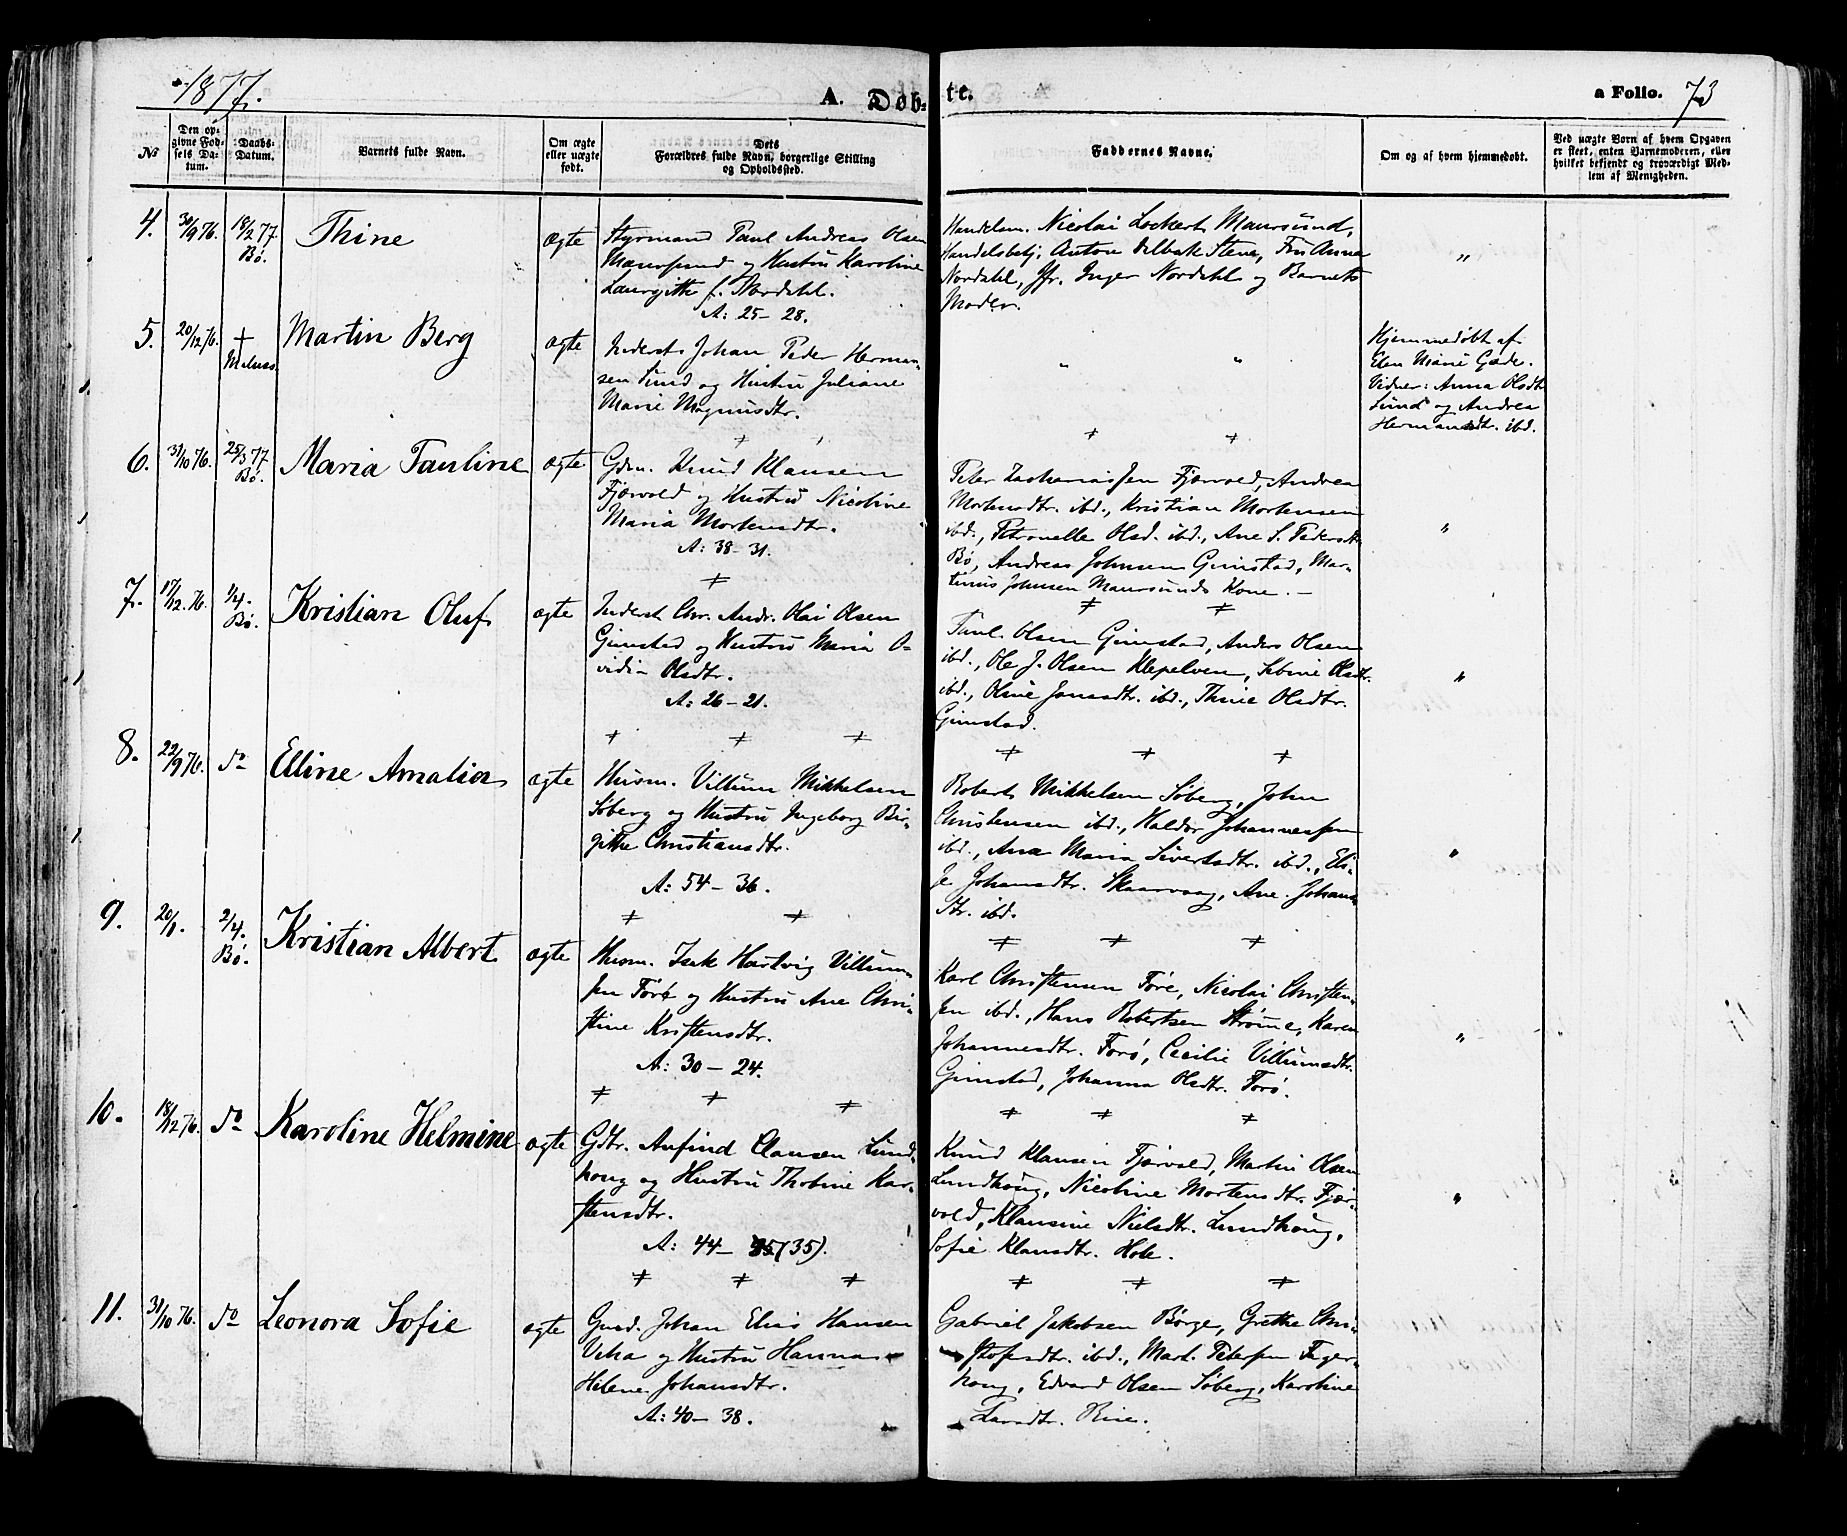 1877.
A. Døbte.
a Folio. 73
No
Den opgivne Fødsels Datum.
Daabs-Datum.
Barnets fulde Navn.
Om ægte eller uægte født.
Dets Forældres fulde Navn, borgerlige Stilling og Opholdssted.
Faddernes Navne.
Om og af hvem hjemmedøbt.
Ved uægte Børn af hvem Opgaven er skeet, enten Barnemoderen, eller hvilket bekjendt og troværdigt Medlem af Menigheden.
4. 30/9 76. 18/2 77. Bø. Thine ægte
Styrmand Paul Andreas Olsen
Maursund og Hustru Karoline
Laurgitte f. Nordahl.
A: 25 – 28.
Handelsm. Nicolai Lockert Maursund,
Handelsbetj. Anton Stene, Fru Anna
Nordahl, Jfr. Inger Nordahl og Barnets
Moder.
"
5. 20/12 76. + Melnes. Martin Berg ægte
Inderst Johan Peder Herman-
sen Sund og Hustru Juliane
Marie Magnusdtr.
" "
Hjemmedøbt af
Elen Marie Gæde.
Vidner: Anna Olsdtr.
Sund og Andrea
Hermansdtr. ibd.
6. 31/10 76. 25/3 77. Bø. Maria Pauline ægte
Gdm. Knud Klausen
Fjærvold og Hustru Nicoline
Maria Mortensdtr.
A: 38 – 31.
Peter Zachariassen Fjærvold, Andrea
Mortensdtr. ibd., Kristian Mortensen
ibd., Petronelle Olsd. ibd., Ane S. Pedersdtr.
Bø, Andreas Johnsen Gimstad, Mar-
tinus Johnsen Maursunds Kone. –
"
7. 17/12 76. 1/4. Bø. Kristian Oluf ægte
Inderst Chr. Andr. Olai Olsen
Gimstad og Hustru Maria O-
vidia Olsdtr.
A: 26 – 21.
Paul Olsen Gimstad, Anders Olsen
ibd., Ole J. Olsen Klepelven, Sebine Olsdtr.
ibd., Oline Jonasdtr. ibd., Thine Olsdtr.
Gimstad.
"
8. 22/9 76. do Elline Amalia ægte
Husm. Villum Mikkelsen
Søberg og Hustru Ingeborg Bir-
gitte Christiansdtr.
A: 54 – 36.
Robert Mikkelsen Søberg, John
Christensen ibd., Haldor Johannessen
ibd., Ana Maria Sivertsdtr. ibd., Eli-
se Johansdtr. Skaarvaag, Ane Johans-
dtr. ibd.
"
9. 20/1. 2/4. Bø. Kristian Albert ægte
Husm. Isak Hartvig Villum-
sen Førø og Hustru Ane Chri-
stine Kristensdtr.
A: 30 – 24.
Karl Christensen Føre, Nicolai Christen-
sen ibd., Hans Robertsen Strøme, Karen
Johannesdtr. Førø, Cecilie Villumsdtr.
Gimstad, Johanna Olsdtr. Førø.
"
10. 18/12 76. do Karoline Helmine ægte
Gdbr. Anfind Clausen Lund-
houg og Hustru Thobine Kar-
stensdtr.
A: 44 – 35 (35).
Knud Klausen Fjærvold, Martin Olsen
Lundhoug, Nicoline Mortensdtr. Fjær-
vold, Klausine Nielsdtr. Lundhoug,
Sofie Klausdtr. Hole.
"
11. 31/10 76. do Leonora Sofie ægte
Gmd. Johan Elias Hansen
Veha og Hustru Hanna
Helene Johansdtr.
A: 40 – 38.
Gabriel Jakobsen Børge, Grethe Chri-
stofersdtr. ibd., Mart. Petersen Fager-
houg, Edvard Olsen Søberg, Karoline
Larsdtr. Rise.